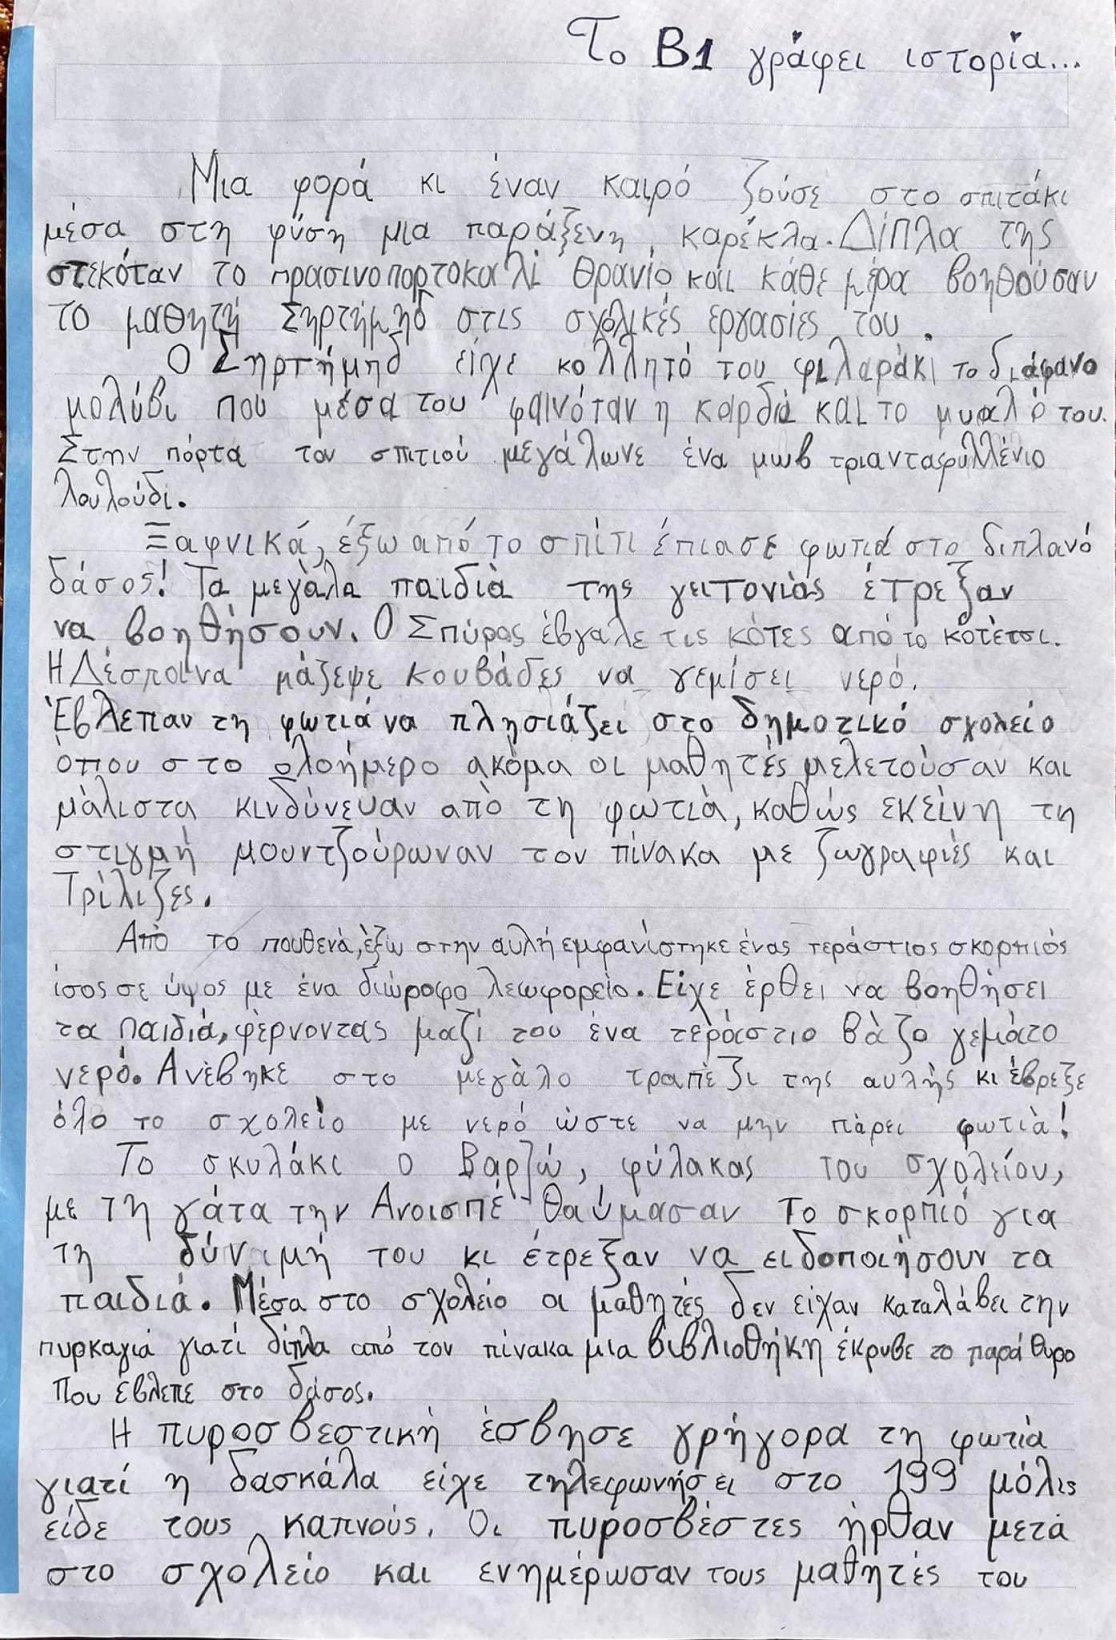 Το Β1 γράφει ιστορία...
Μια φορά κι έναν καιρό ζούσε στο σπιτάκι
μέσα στη φύση μια παράξενη καρέκλα. Δίπλα της
στεκόταν το πρασινοπορτοκαλί θρανίο και κάθε μέρα βοηθούσαν
το μαθητή Σηρτήμηδ στις σχολικές εργασίες του.
Ο Σηρτήμηδ είχε κολλητό του φιλαράκι το διάφανο
μολύβι που μέσα του φαινόταν η καρδιά και το μυαλό του.
Στην πόρτα του σπιτιού μεγάλωνε ένα μωβ τριανταφυλλένιο
λουλούδι.
Ξαφνικά, έξω από το σπίτι έπιασε φωτιά στο διπλανό
δάσος! Τα μεγάλα παιδιά της γειτονιάς έτρεξαν
να βοηθήσουν. Ο Σπύρος έβγαλε τις κότες από το κοτέτσι.
Η Δέσποινα μάζεψε κουβάδες να γεμίσει νερό.
Έβλεπαν τη φωτιά να πλησιάζει στο δημοτικό σχολείο
όπου στο ολοήμερο ακόμα οι μαθητές μελετούσαν και
μάλιστα κινδύνευαν από τη φωτιά, καθώς εκείνη τη
στιγμή μουντζούρωναν τον πίνακα με ζωγραφιές και
Τρίλιζες.
Από το πουθενά, έξω στην αυλή εμφανίστηκε ένας τεράστιος σκορπιός
ίσος σε ύψος με ένα διώροφο λεωφορείο. Είχε έρθει να βοηθήσει
τα παιδιά, φέρνοντας μαζί του ένα τεράστιο βάζο γεμάτο
νερό. Ανέβηκε στο μεγάλο τραπέζι της αυλής κι έβρεξε
όλο το σχολείο με νερό ώστε να μην πάρει φωτιά!
Το σκυλάκι ο Βαρζώ, φύλακας του σχολείου,
με τη γάτα την Ανοισπέ θαύμασαν το σκορπιό για
τη δύναμή του κι έτρεξαν να ειδοποιήσουν τα
παιδιά. Μέσα στο σχολείο οι μαθητές δεν είχαν καταλάβει την
πυρκαγιά γιατί δίπλα από τον πίνακα μια βιβλιοθήκη έκρυβε το παράθυρο
που έβλεπε στο δάσος.
Η πυροσβεστική έσβησε γρήγορα τη φωτιά
γιατί η δασκάλα είχε τηλεφωνήσει στο 199 μόλις
είδε τους καπνούς. Οι πυροσβέστες ήρθαν μετά
στο σχολείο και ενημέρωσαν τους μαθητές του